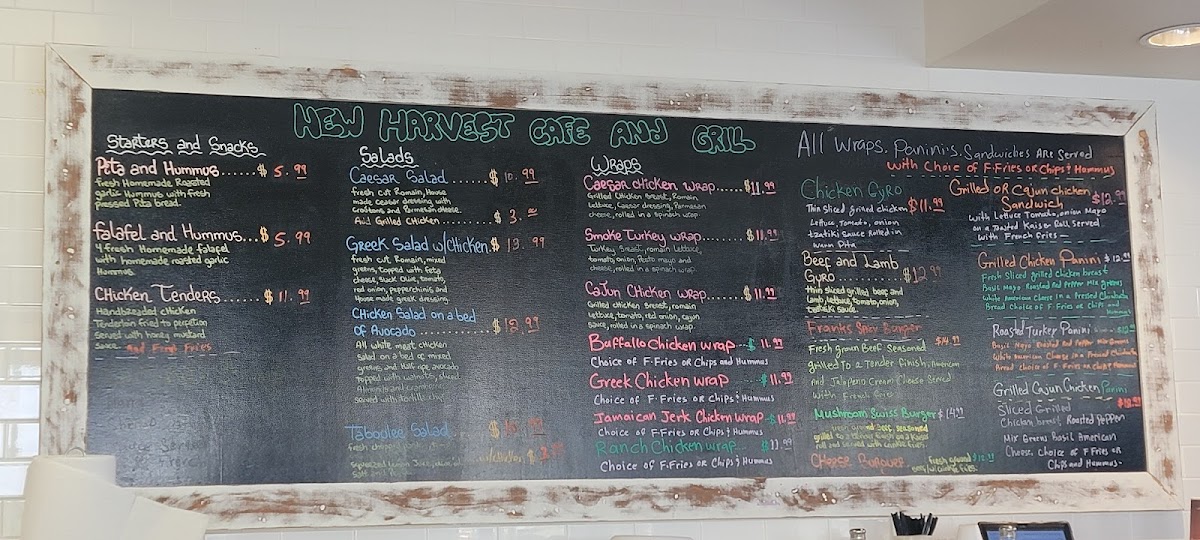 NEW HARVEST CAFE AND GRILL
Starters and Snacks
Pita and Hummus...... $ 5.99
fresh Homemade Roasted
garlic Hummus with fresh
pressed Pita bread.
falafel and Hummus... $ 5.99
4 fresh Homemade falafel
with homemade roasted garlic
Hummus.
CHicken Tenders...... $ 11.99
Handbreaded chicken
Served with honey mustard
sauce. And Firsh Fries
Salads
Caesar Salad ....... $ 10.99
fresh cut Romain, House
made ceasar dressing with
Croutons and Parmesan cheese.
Add Grilled Chicken $ 3.00
Greek Salad w/Chicken. $ 13.99
fresh cut Romain, mixed
greens, topped with feta
cheese, black Olive, tomato,
red onion, pepperchinis and
House made greek dressing.
CHicken Salad on a bed
OF Avocado
All white meat chicken
salad on a bed of mixed
greens and Half ripe avocado
topped with walnuts, sliced
Taboolee Salad
Wraps
Caesar CHicken wrap..... $11.99
Grilled CHicken breast, Romain
Lettuce, Caesar dressing, Parmesan
cheese, rolled in a spinach wrap.
Smoke Turkey wrap..... $11.99
Turkey Breast, romain lettuce,
tomato, onion, Pesto mayo and
cheese, rolled in a spinach wrap.
CaJun CHicken wrap..... $11.99
Grilled CHicken Breast, romain
Lettuce, tomato, red onion, cajun
sauce, rolled in a spinach wrap.
Buffallo Chicken wrap $ 11.99
Choice of F.Fries or Chips and Hummus
Greek Chicken wrap $11.99
Choice of F.Fries or Chips & Hummus
Jamaican Jerk Chicken Wrap $11.99
Choice of F.Fries or Chips & Hummus
Ranch Chicken wrap $11.99
Choice of F.Fries or Chips & Hummus
All Wraps. Panini's. Sandwiches Are Served
with Choice of F.Fries OR Chips & Hummus
Chicken Gyro $11.99
Thin sliced grilled chicken
Lettuce, Tomato, onion
tzatiki Sauce Rolled in
warm Pita
Beef and Lamb
Gyro ........ $12.99
Thin sliced grilled beef and
lamb, lettuce, tomato, onion,
tzatziki sauce.
Franks Spicy Burger $14.99
Fresh groun Beef Seasoned
grilled to a Tender finish, American
and Jalapeno Cream Cheese Served
With French Fries
Mushroom Swiss Burger $14.99
fresh ground Beef, seasoned
Cheese Burguer
Grilled OR Cajun Chicken
Sandwich
with Lettuce Tomato, onion Mayo
on a Toasted Kaiser Roll served
with French Fries
Grilled Chicken Panini $ 12.99
Fresh sliced grilled chicken breast
Basil Mayo Roasted Red Pepper Mix greens
White American Cheese in a Pressed Ciabatta
Bread Choice of F.Fries or Chips and
Hummus
Roasted Turkey Panini
Basil Mayo Roasted Red Pepper Mix Greens
White American Cheese in a Pressed Ciabatta
Bread choice of F.Fries or Chips & Hummus
Grilled Cajun Chicken Panini
Sliced Grilled
Chicken breast, Roasted Pepper
Mix Greens Basil American
Cheese, Choice of F.Fries or
Chips and Hummus-